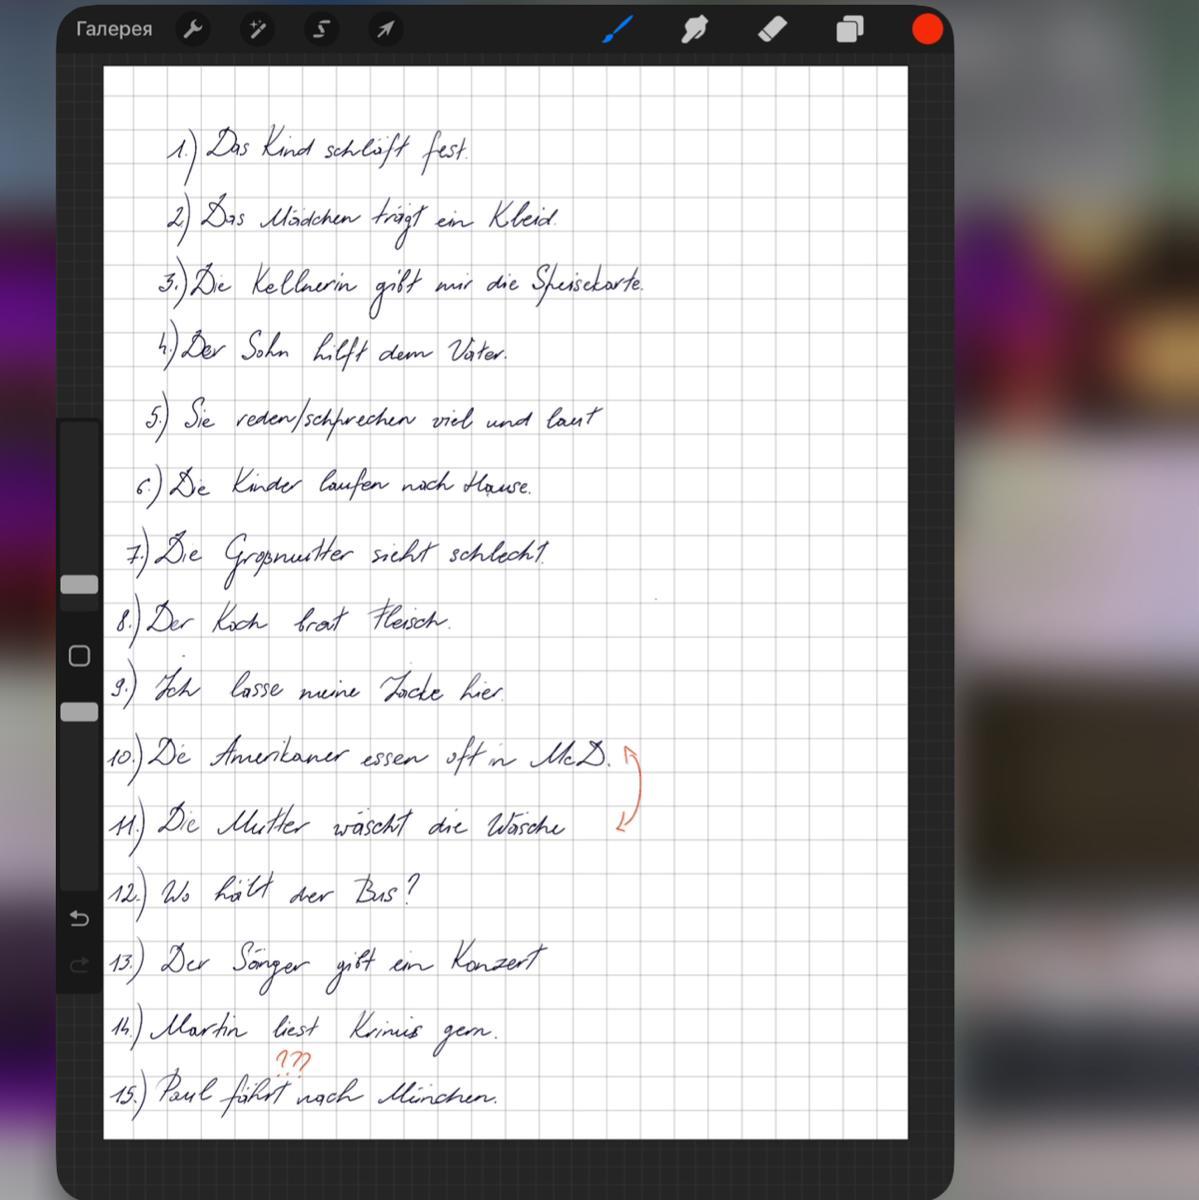 Галерея
1.) Das Kind schläft fest.
2) Das Mädchen trägt ein Kleid.
3.) Die Kellnerin gibt mir die Speisekarte.
4.) Der Sohn hilft dem Vater.
5.) Sie reden/schprechen viel und laut
6.) Die Kinder laufen nach Hause.
7.) Die Großmutter sieht schlecht.
8.) Der Koch brat Fleisch.
9.) Ich lasse meine Jacke hier.
10.) Die Amerikaner essen oft in McD.
11.) Die Mutter wäscht die Wäsche
12.) Wo hält der Bus?
13.) Der Sänger gibt ein Konzert
14.) Martin liest Krimis gern.
???
15.) Paul fährt nach München.